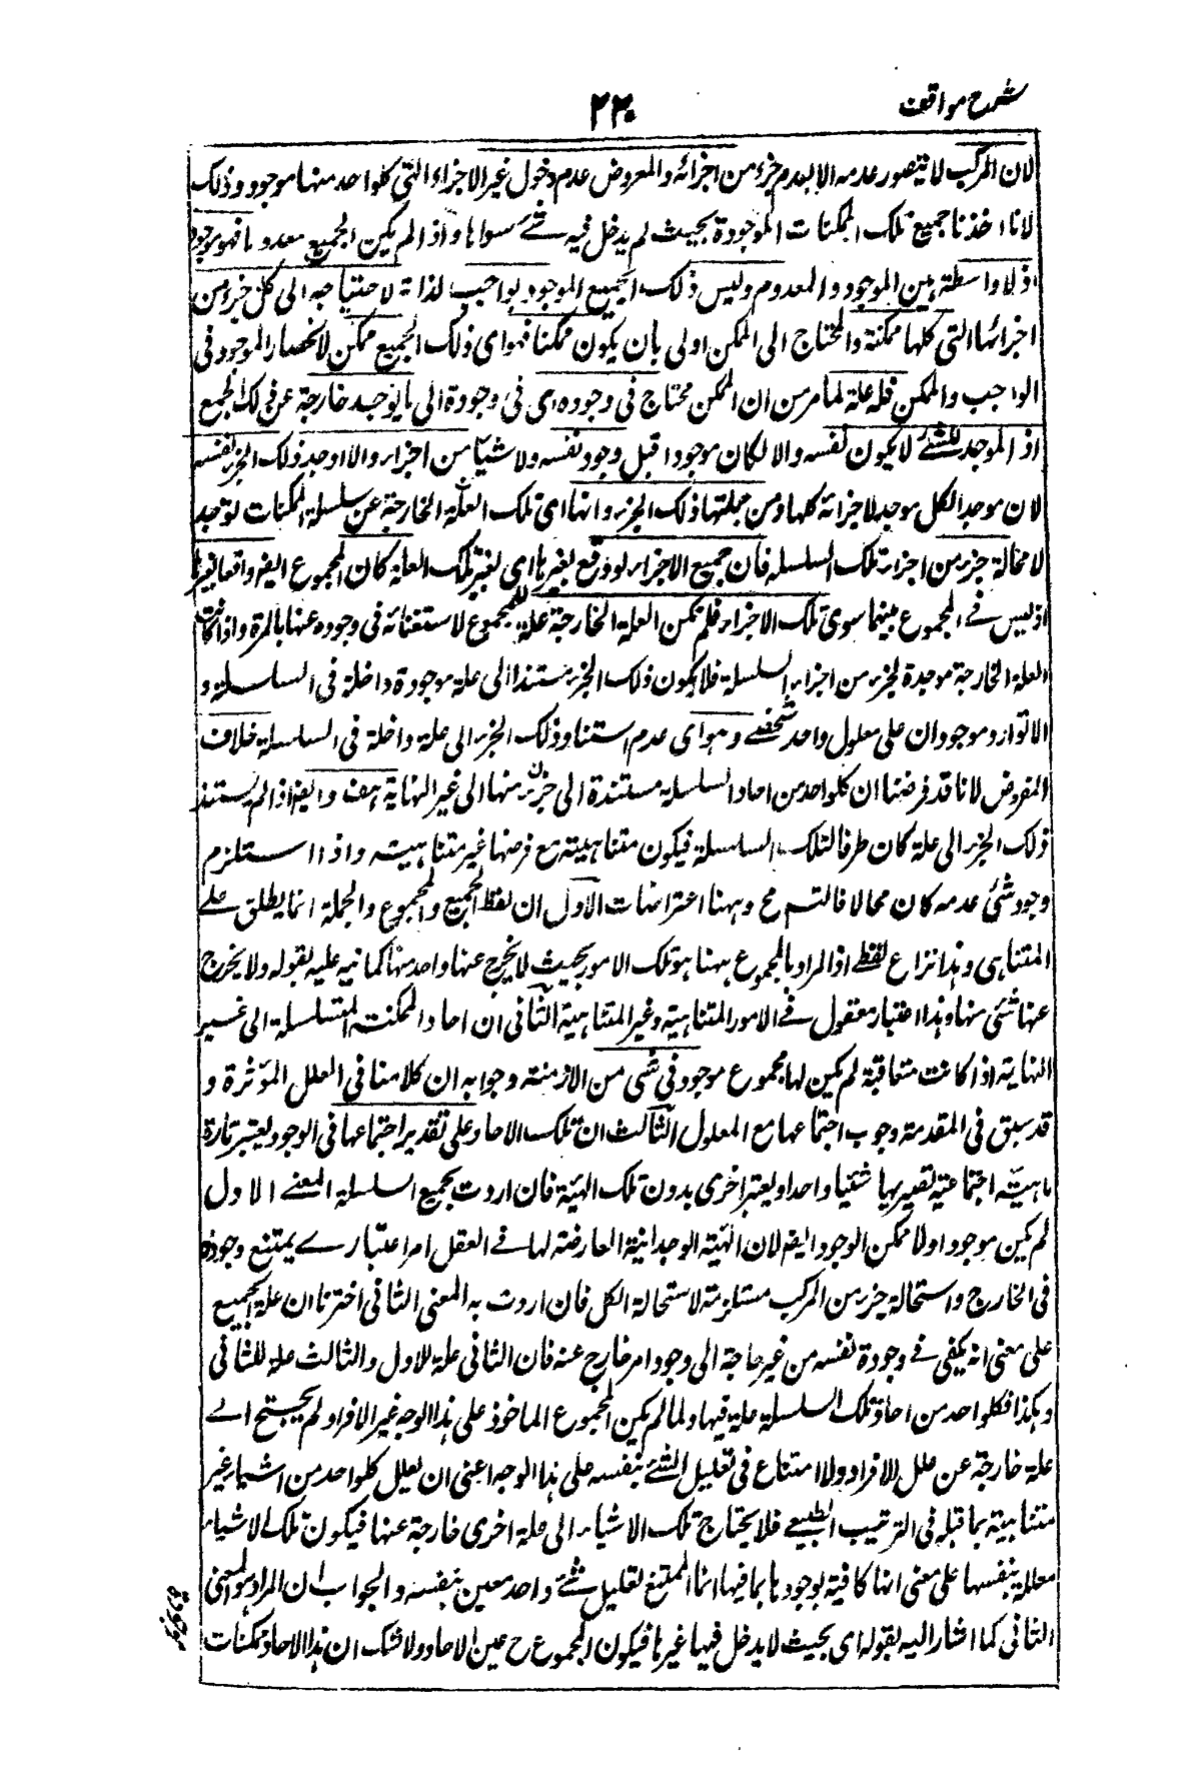 شرح مواقف
۲۲۰
لان المركب لا يتصور عدمه الا بعدم جزء من اجزائه والمعروض عدم دخول غير الاجزاء التى كل واحد منها موجود وذلك
لانا اخذنا جميع تلك الممكنات الموجودة بحيث لم يدخل فيه شئ سواها واذ لم يكن الجميع معدوما فهو موجود
اذ لا واسطة بين الموجود والمعدوم وليس ذلك الجميع الموجود بواجب لذاته لاحتياجه الى كل جزء من
اجزائها التى كلها ممكنة والمحتاج الى الممكن اولى بان يكون ممكنا فهو اى ذلك الجميع ممكن لانحصار الموجود فى
الواجب والممكن فله علة لما مر من ان الممكن محتاج فى وجوده اى فى وجودة الى ما يوجده خارجة عن ذلك الجميع
اذ الموجد للشئ لا يكون نفسه والا لكان موجودا قبل وجود نفسه ولا شيئا من اجزاءه والا اوجد ذلك الجزء نفسه
لان موجد الكل موجد لاجزائه كلها ومن جملتها ذلك الجزء وانها اى تلك العلة الخارجة عن سلسلة الممكنات توجد
لا محالة جزء من اجزاء تلك السلسله فان جميع الاجزاء لو وقع بغيرها اى لغير تلك العلة كان المجموع ايضا واقعا بغيرها
اذ ليس فى المجموع بينما سوى تلك الاجزاء فلم تكن العلة الخارجة علة للمجموع لاستغنائه فى وجوده عنها بالمرة واذا كانت
العلة الخارجة موجدة لجزء من اجزاء السلسلة فلا يكون ذلك الجزء مستندا الى علة موجودة داخلة فى السلسلة و
الا توارد موجودان على معلول واحد شخصى وهو اى عدم استناد ذلك الجزء الى علة داخلة فى السلسلة خلاف
المفروض لانا قد فرضنا ان كل واحد من احاد السلسلة مستندة الى جزء منها الى غير النهاية هف وايضا اذا لم يستند
ذلك الجزء الى علة كان طرفا لتلك السلسلة فيكون متناهية مع فرضها غير متناهية واذا استلزم
وجود شئ عدمه كان محالا فالتسـ مح وههنا اعتراضات الاول ان لفظ الجميع والمجموع والجملة انما يطلق على
المتناهى وهذا نزاع لفظى اذ المراد بالمجموع ههنا هو تلك الامور بحيث لا يخرج عنها واحد منها كما نبه عليه بقوله ولا يخرج
عنها شئ منها وهذا اعتبار معقول فى الامور المتناهية وغير المتناهية الثانى ان احاد الممكنة المتسلسلة الى غير
النهاية اذا كانت متعاقبة لم يكن لها مجموع موجود فى شئ من الازمنة وجوابه ان كلامنا فى العلل المؤثرة و
قد سبق فى المقدمة وجوب اجتماعها مع المعلول الثالث ان تلك الاحاد على تقدير اجتماعها فى الوجود يعتبر تارة
ما هيئة اجتماعية تصير بها شيئا واحدا ويعتبر اخرى بدون تلك الهيئة فان اردت بجميع السلسلة المعنى الاول
لم يكن موجودا ولا ممكن الوجود ايضا لان الهيئة الوحدانية العارضة لها فى العقل امر اعتبارى يمتنع وجوده
فى الخارج واستحالة جزء من المركب مستلزمة لاستحالة الكل فان اردت به المعنى الثانى اخترنا ان علة الجميع
على معنى انه يكفى فى وجودة نفسه من غير حاجة الى وجود امر خارج عنه فان الثانى علة للاول والثالث علة للثانى
وهكذا فكل واحد من احاد تلك السلسلة علة فيها ولما لم يكن المجموع الماخوذ على هذا الوجه غير الافراد لم يحتج الى
علة خارجة عن علل الافراد ولا امتناع فى تعليل الشئ بنفسه على هذا الوجه اعنى ان يعلل كل واحد من اشياء غير
متناهية بما قبله فى الترتيب الطبيعى فلا يحتاج تلك الاشياء الى علة اخرى خارجة عنها فيكون تلك الاشياء
معللة بنفسها على معنى انها كافية بوجودها بما فيها انما الممتنع تعليل شئ واحد معين بنفسه والجواب ان المراد هو المعنى
الثانى كما اشار اليه بقوله اى بحيث لا يدخل فيها غيرها فيكون المجموع ح عين الاحاد ولا شك ان هذا الاحاد ممكنات
موجودة